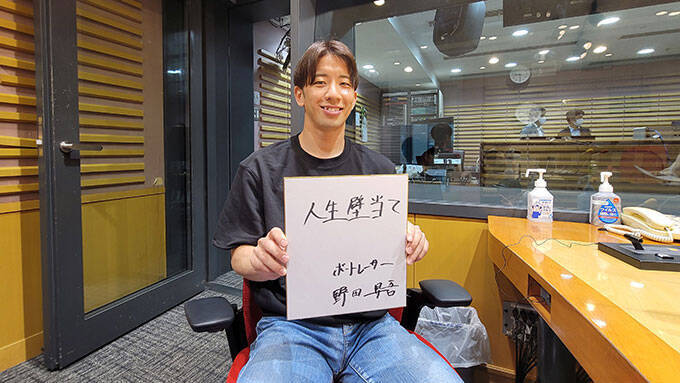 人生壁当て
ボートレーサー
野田昇吾